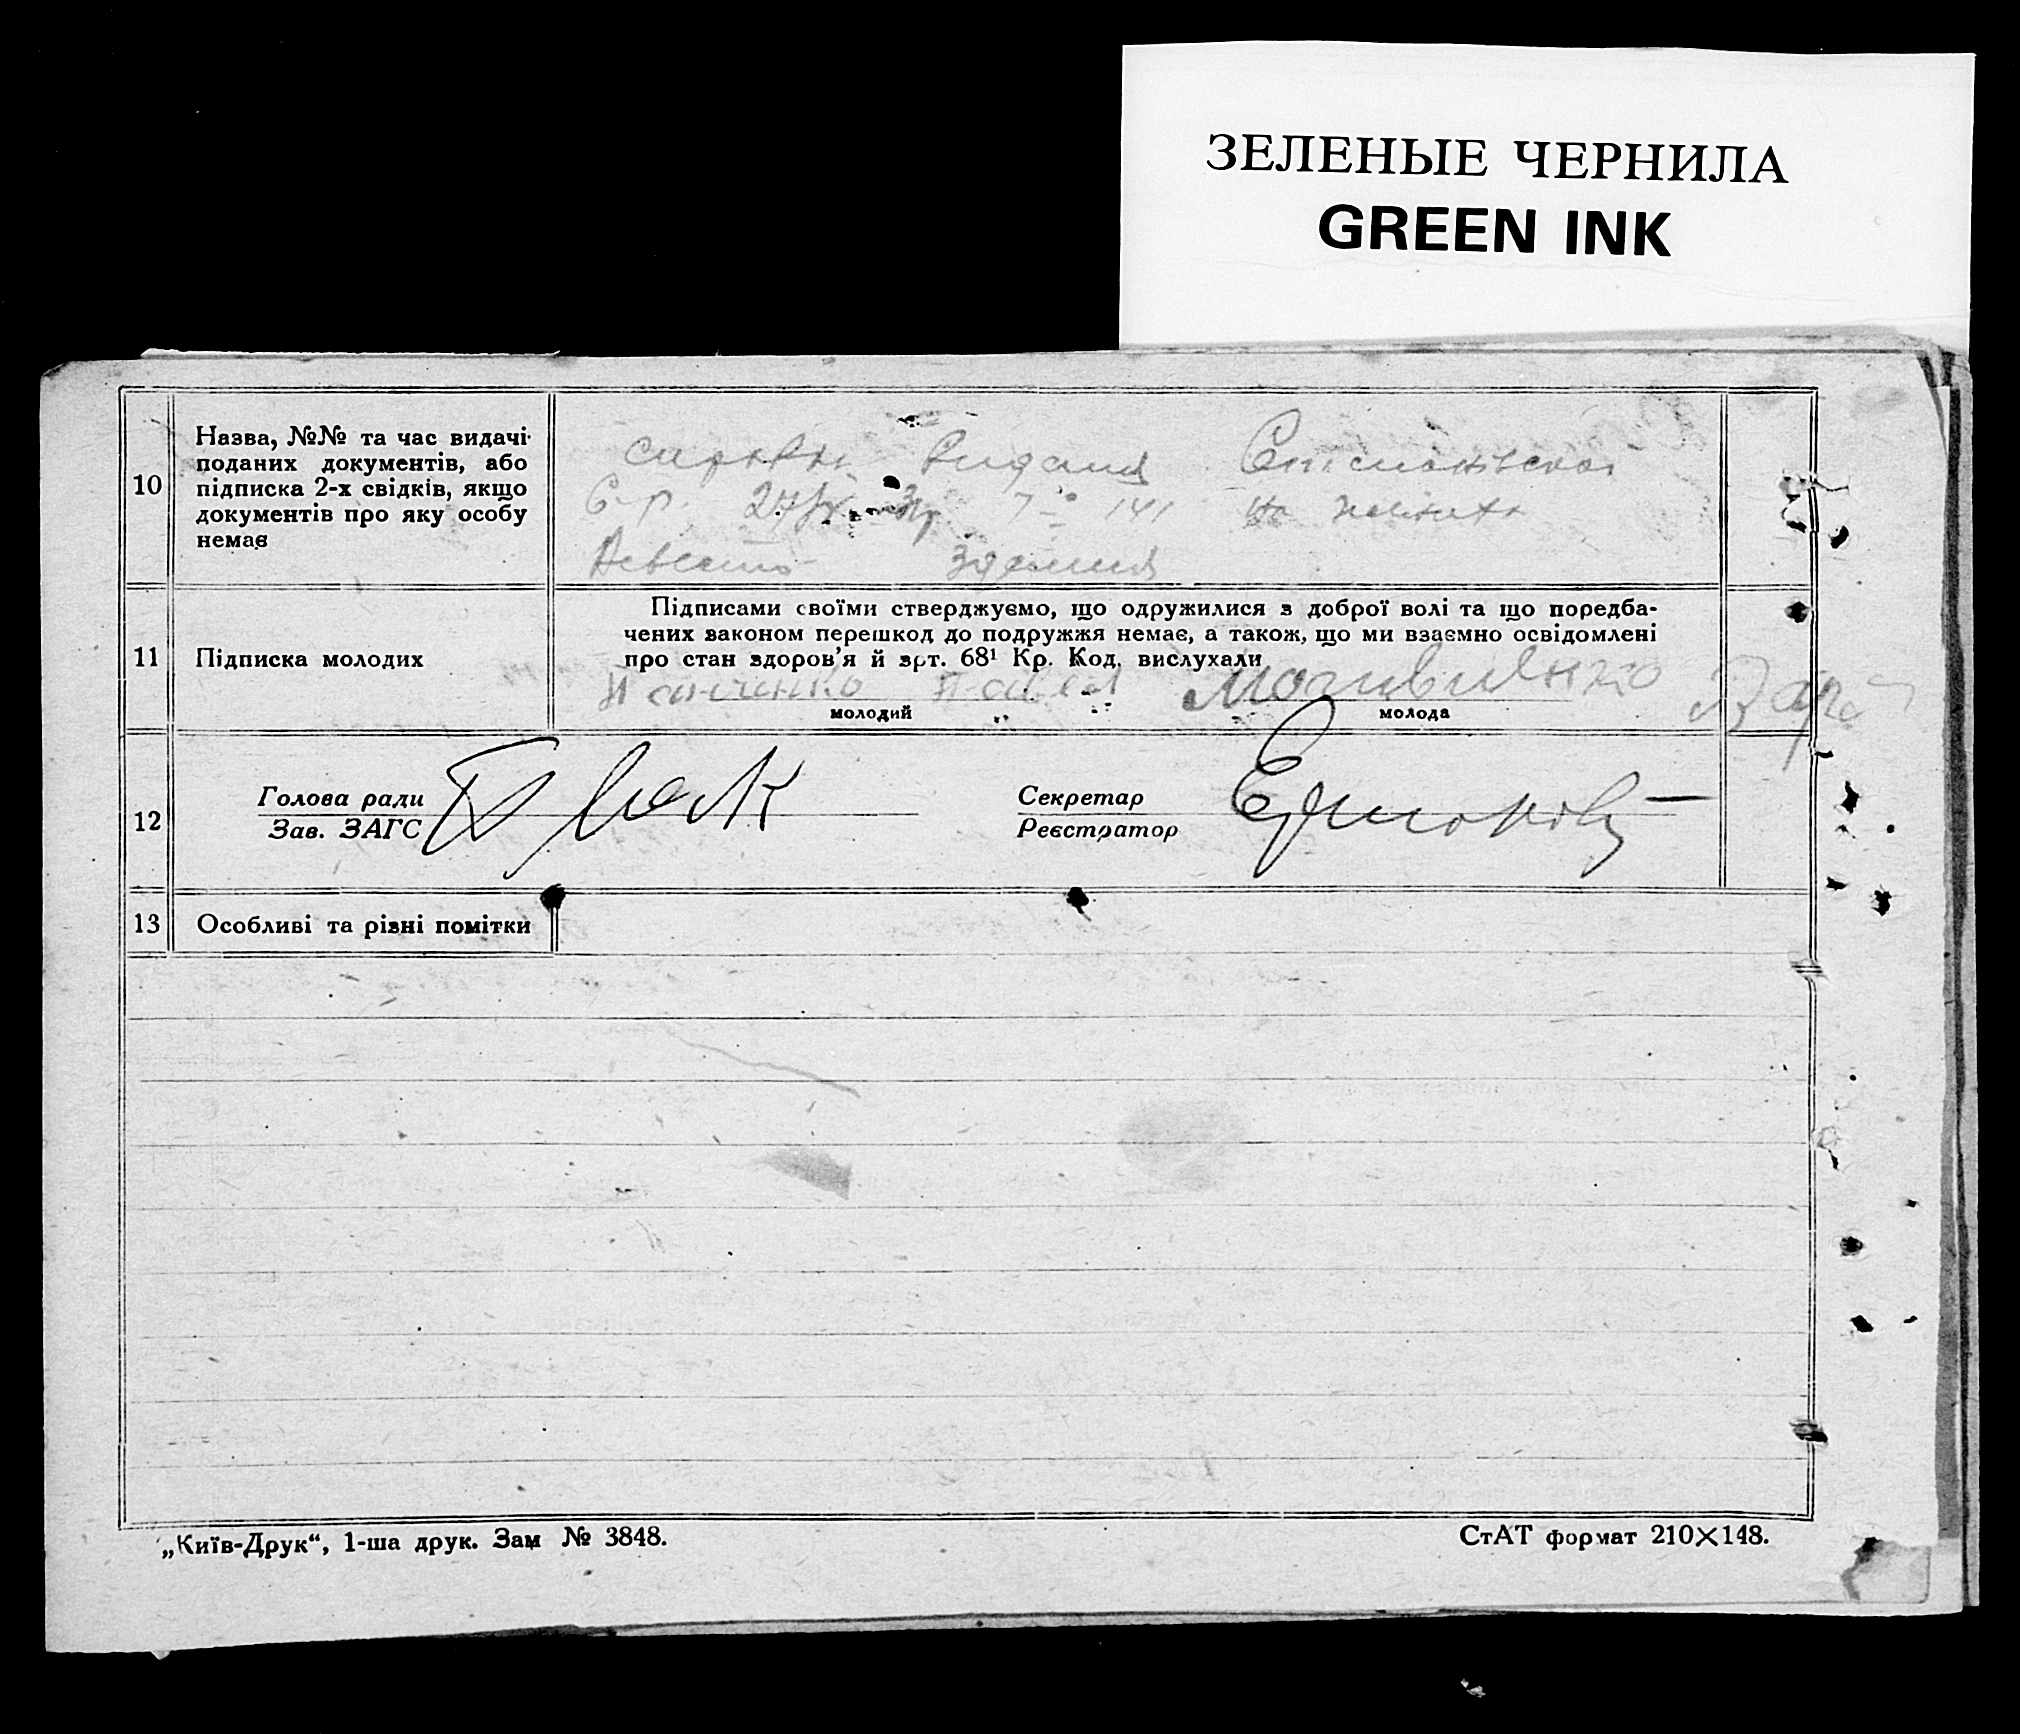 ЗЕЛЕНЫЕ ЧЕРНИЛА
GREEN INK
10
Назва, №№ та час видачі
поданих документів, або
підписка 2-х свідків, якщо
документів про яку особу
немає
справки Виданя
С-р. 27/ 141 на
здания
11
Підписка молодих
Підписами своїми стверджуємо, що одружилися з доброї волі та що поредба-
чених законом перешкод до подружжя немає, а також, що ми взаємно освідомлені
про стан здоров'я й арт. 68¹ Кр. Код. вислухали
Панченко Павел
молодий
молода
12
Голова ради
Зав. ЗАГС
Секретар
Реєстратор
13
Особливі та різні помітки
„Київ-Друк“, 1-ша друк. Зам № 3848.
СтАТ формат 210×148.